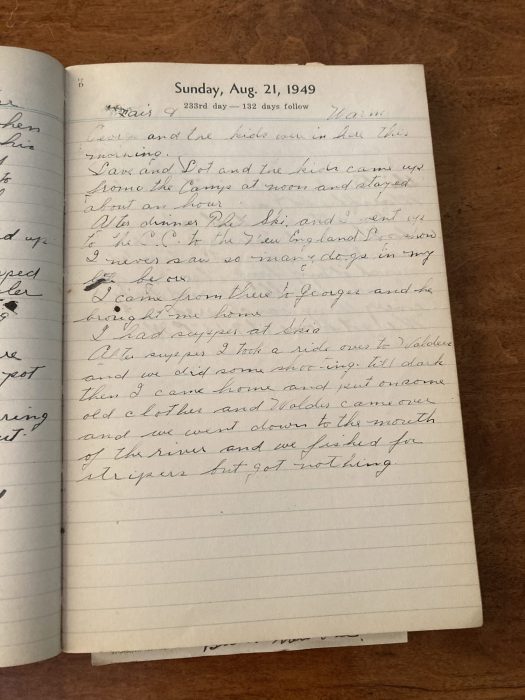 Sunday, Aug. 21, 1949
233rd day — 132 days follow
Fair & Warm
George and the kids were in here this
morning.
Dave and Dot and the kids came up
frome the Camp at noon and stayed
about an hour
After dinner Phil Ski and I went up
to the C.C. to the New England Dog show
I never saw so many dogs in my
life before
I came from there to Georges and he
brought me home
I had supper at Skis
After supper I took a ride over to Waldies
and we did some shooting till dark
then I came home and put on some
old clothes and Waldie came over
and we went down to the mouth
of the river and we fished for
stripers but got nothing.
hen
his
to
d up
pped
ler
re
pot
ring
t.